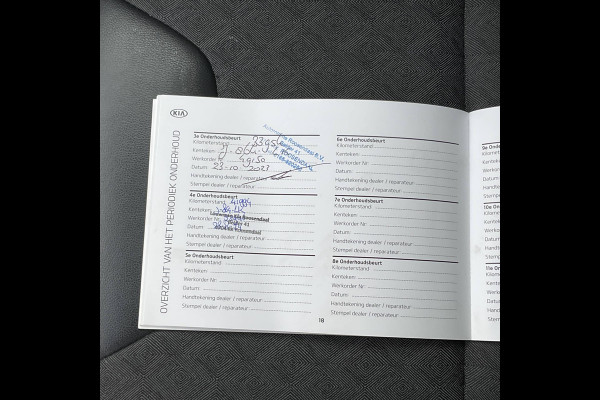 KIA
OVERZICHT VAN HET PERIODIEK ONDERHOUD
3e Onderhoudsbeurt
Kilometerstand
Kenteken
Werkorder Nr: 49150
Datum: 23-10-2023
Handtekening dealer / reparateur
Stempel dealer / reparateur
4e Onderhoudsbeurt
Kilometerstand 41994
Kenteken
Werkorder
Roosendaal
Datum:
Handtekening dealer / reparateur
Stempel dealer / reparateur
5e Onderhoudsbeurt
Kilometerstand
Kenteken:
Werkorder Nr:
Datum:
Handtekening dealer / reparateur
Stempel dealer / reparateur
6e Onderhoudsbeurt
Kilometerstand
Kenteken:
Werkorder Nr:
Datum:
Handtekening dealer / reparateur
Stempel dealer / reparateur
7e Onderhoudsbeurt
Kilometerstand
Kenteken:
Werkorder Nr:
Datum:
Handtekening dealer / reparateur
Stempel dealer / reparateur
8e Onderhoudsbeurt
Kilometerstand
Kenteken:
Werkorder Nr:
Datum:
Handtekening dealer / reparateur
Stempel dealer / reparateur
18
9e On
Kilom
Kente
Werk
Datu
Hand
Stem
10e
Kilo
Ken
We
Dat
Ha
Ste
11e
Kil